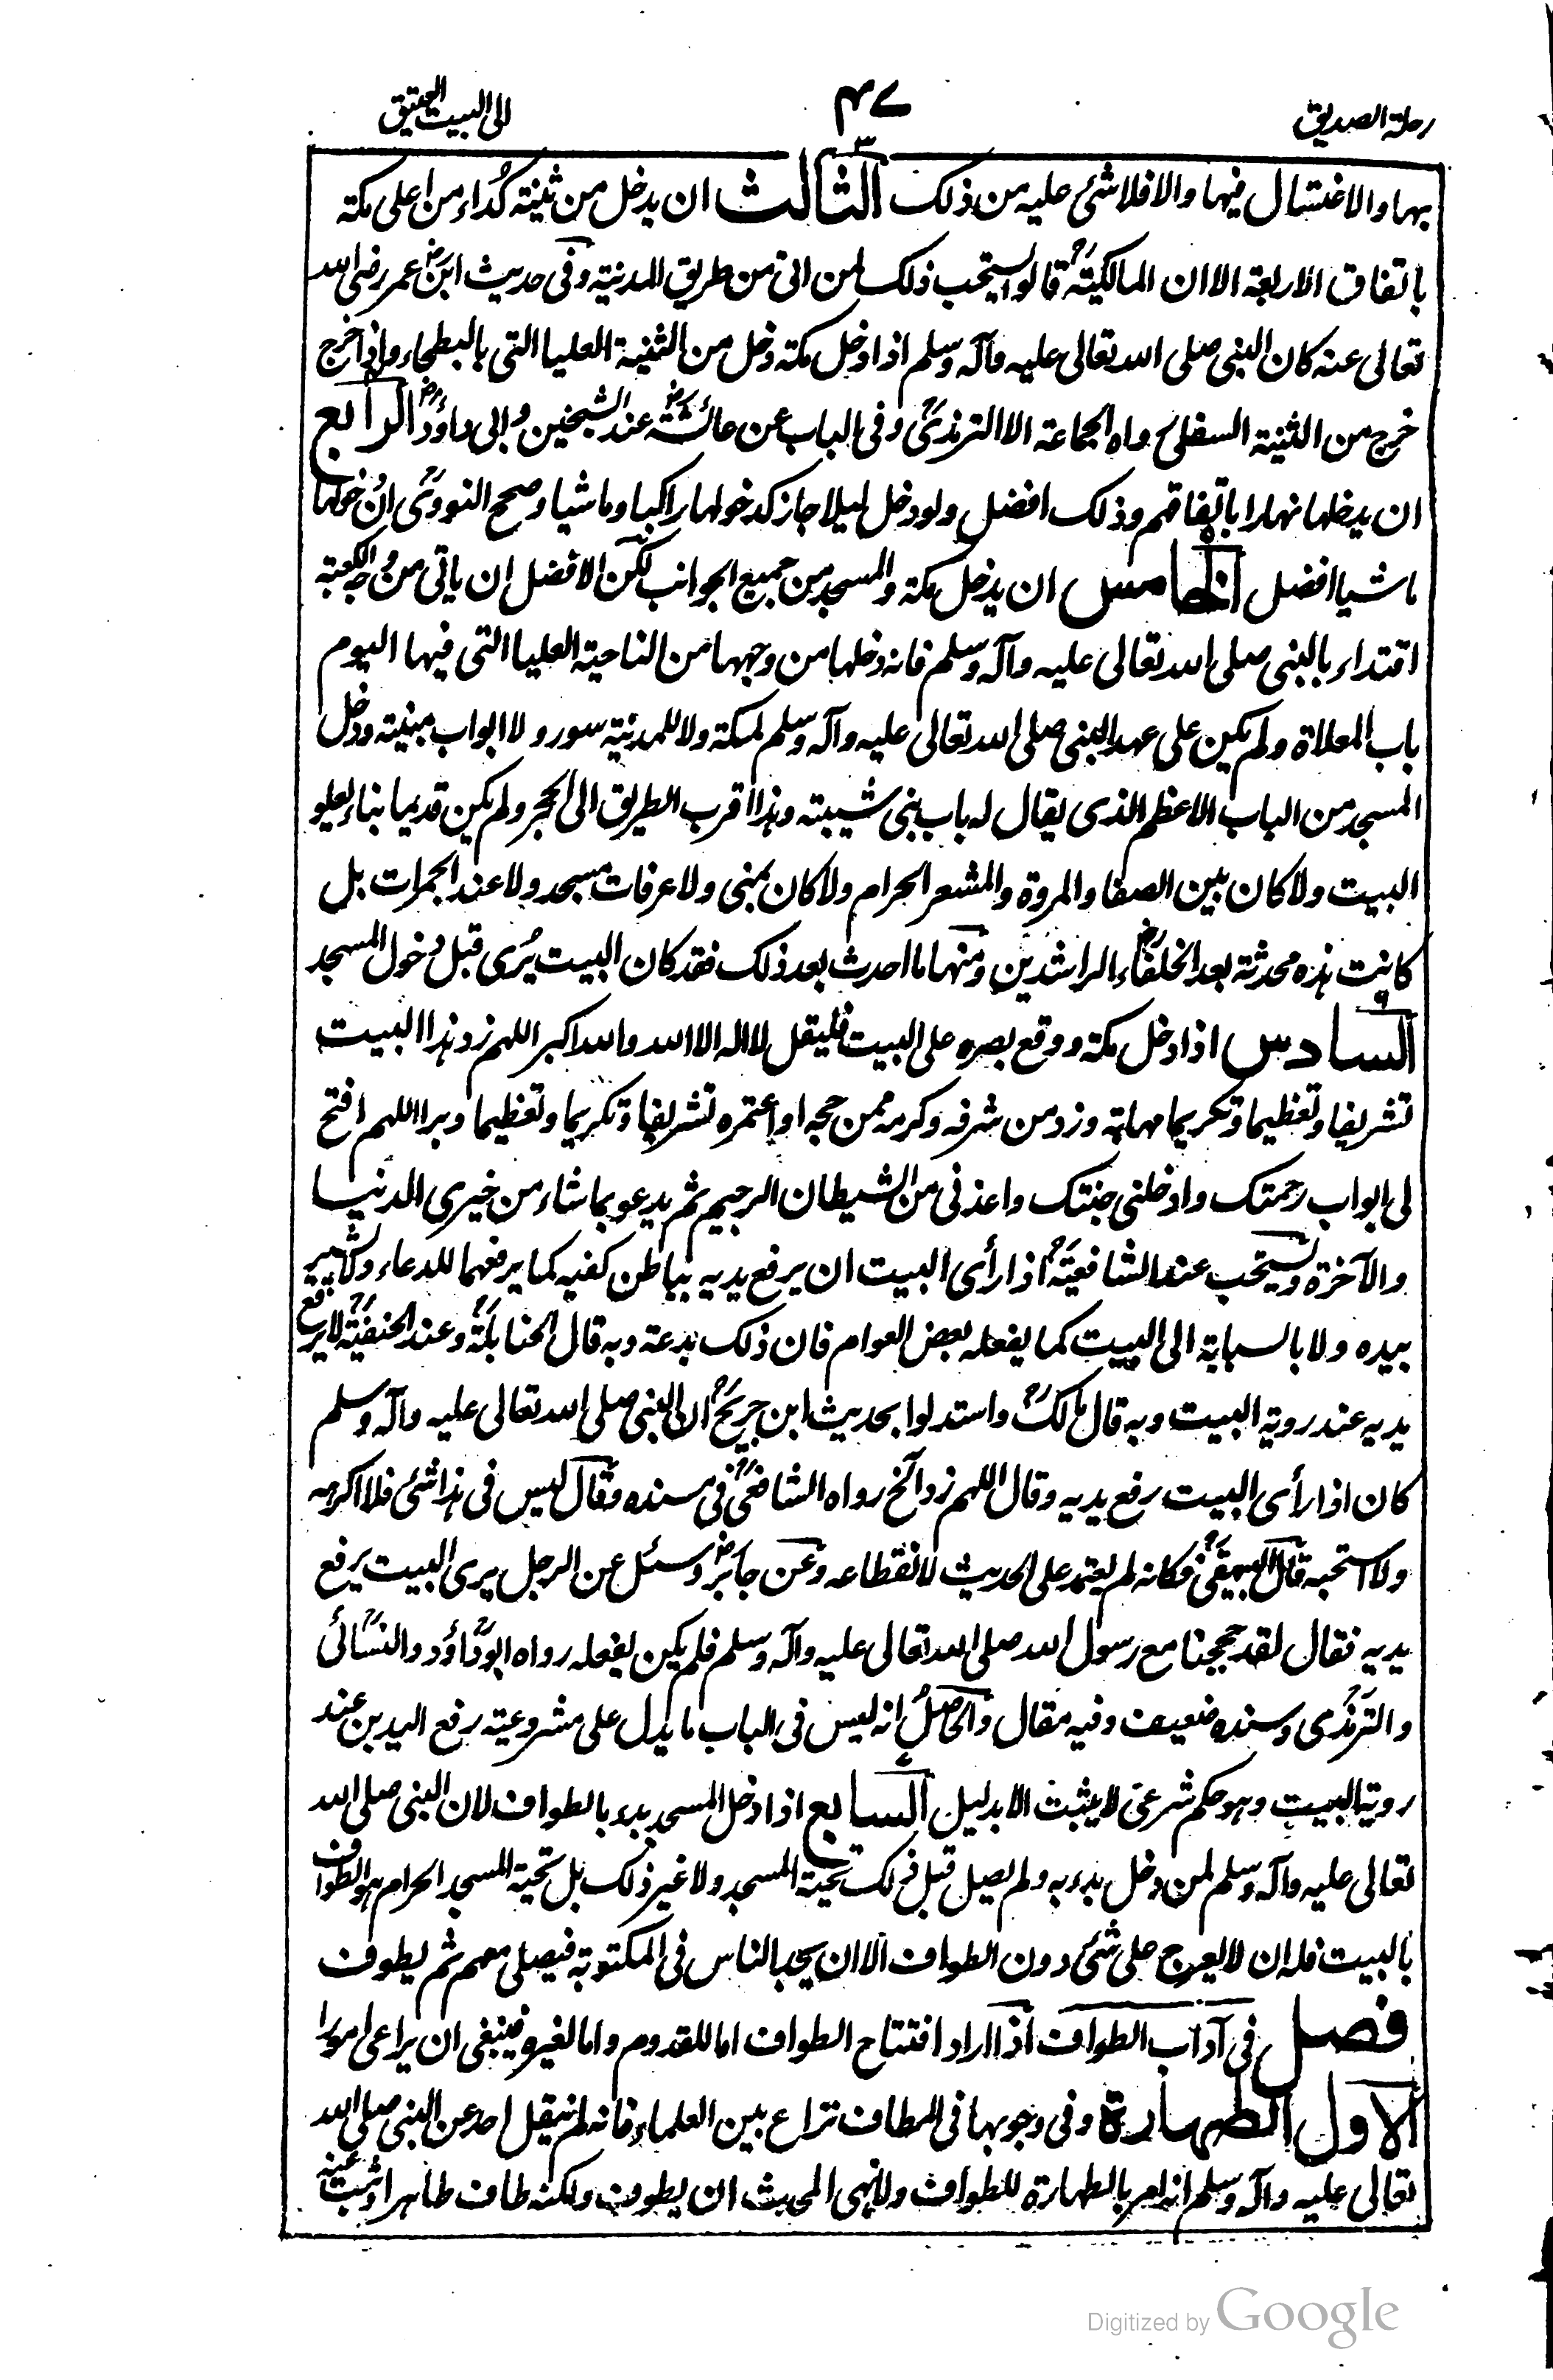 رحلة الصديق ٤٧ الى البيت العتيق
بها والاغتسال فيها والا فلا شئ عليه من ذلك الثالث ان يدخل من ثنية كُداء من اعلى مكة
باتفاق الاربعة الا ان المالكية قالوا يستحب ذلك لمن اتى من طريق المدينة وفى حديث ابن عمر رضى الله
تعالى عنه كان النبى صلى الله تعالى عليه وآله وسلم اذا دخل مكة دخل من الثنية العليا التى بالبطحاء واذا خرج
خرج من الثنية السفلى رواه الجماعة الا الترمذى وفى الباب عن عائشة عند الشيخين وابى داؤد الرابع
ان يدخلها نهارا باتفاقهم وذلك افضل ولو دخل ليلا جاز كدخولها راكبا وماشيا وصحح النووى ان دخولها
ماشيا افضل الخامس ان يدخل مكة والمسجد من جميع الجوانب لكن الافضل ان ياتى من وجه الكعبة
اقتداء بالنبى صلى الله تعالى عليه وآله وسلم فانه دخلها من وجهها من الناحية العليا التى فيها اليوم
باب المعلاة ولم يكن على عهد النبى صلى الله تعالى عليه وآله وسلم لمكة ولا للمدينة سور ولا ابواب مبنية ودخل
المسجد من الباب الاعظم الذى يقال له باب بنى شيبة وهذا اقرب الطريق الى الحجر ولم يكن قديما بناء يعلو
البيت ولا كان بين الصفا والمروة والمشعر الحرام ولا كان بمنى ولا عرفات مسجد ولا عند الجمرات بل
كانت هذه محدثة بعد الخلفاء الراشدين ومنها ما احدث بعد ذلك فقد كان البيت يُرى قبل دخول المسجد
السادس اذا دخل مكة ووقع بصره على البيت فليقل لا اله الا الله والله اكبر اللهم زد هذا البيت
تشريفا وتعظيما وتكريما مهابة وزد من شرفه وكرمه ممن حجه او اعتمره تشريفا وتكريما وتعظيما وبرا اللهم افتح
لى ابواب رحمتك وادخلنى جنتك واعذنى من الشيطان الرجيم ثم يدعو بما شاء من خيرى الدنيا
والآخرة ويستحب عند الشافعية اذا رأى البيت ان يرفع يديه بباطن كفيه كما يرفعهما للدعاء ولا يشير
بيده ولا بالسبابة الى البيت كما يفعله بعض العوام فان ذلك بدعة وبه قال الحنابلة وعند الحنفية لا يرفع
يديه عند روية البيت وبه قال مالك واستدلوا بحديث ابن جريج ان النبى صلى الله تعالى عليه وآله وسلم
كان اذا رأى البيت رفع يديه وقال اللهم زد الخ رواه الشافعى فى مسنده وقال ليس فى هذا شئ فلا اكرهه
ولا استحبه قال البيهقى فكانه لم يعتمد على الحديث لانقطاعه وعن جابر وسئل عن الرجل يرى البيت يرفع
يديه فقال لقد حججنا مع رسول الله صلى الله تعالى عليه وآله وسلم فلم يكن يفعله رواه ابو داؤد والنسائى
والترمذى وسنده ضعيف وفيه مقال والحاصل انه ليس فى الباب ما يدل على مشروعية رفع اليدين عند
روية البيت وهو حكم شرعى لا يثبت الا بدليل السابع اذا دخل المسجد بدء بالطواف لان النبى صلى الله
تعالى عليه وآله وسلم لمن دخل بدء به ولم يصل قبل ذلك تحية المسجد ولا غير ذلك بل تحية المسجد الحرام هو الطواف
بالبيت فله ان لا يعرج على شئ دون الطواف الا ان يجد الناس فى المكتوبة فيصلى معهم ثم يطوف
فصل فى آداب الطواف اذا اراد افتتاح الطواف اما للقدوم واما لغيره فينبغى ان يراعى امورا
الاول الطهارة وفى وجوبها فى المطاف نزاع بين العلماء فانه لم ينقل احد عن النبى صلى الله
تعالى عليه وآله وسلم انه امر بالطهارة للطواف ولا نهى المحدث ان يطوف ولكنه طاف طاهرا وثبت عنه
Digitized by Google